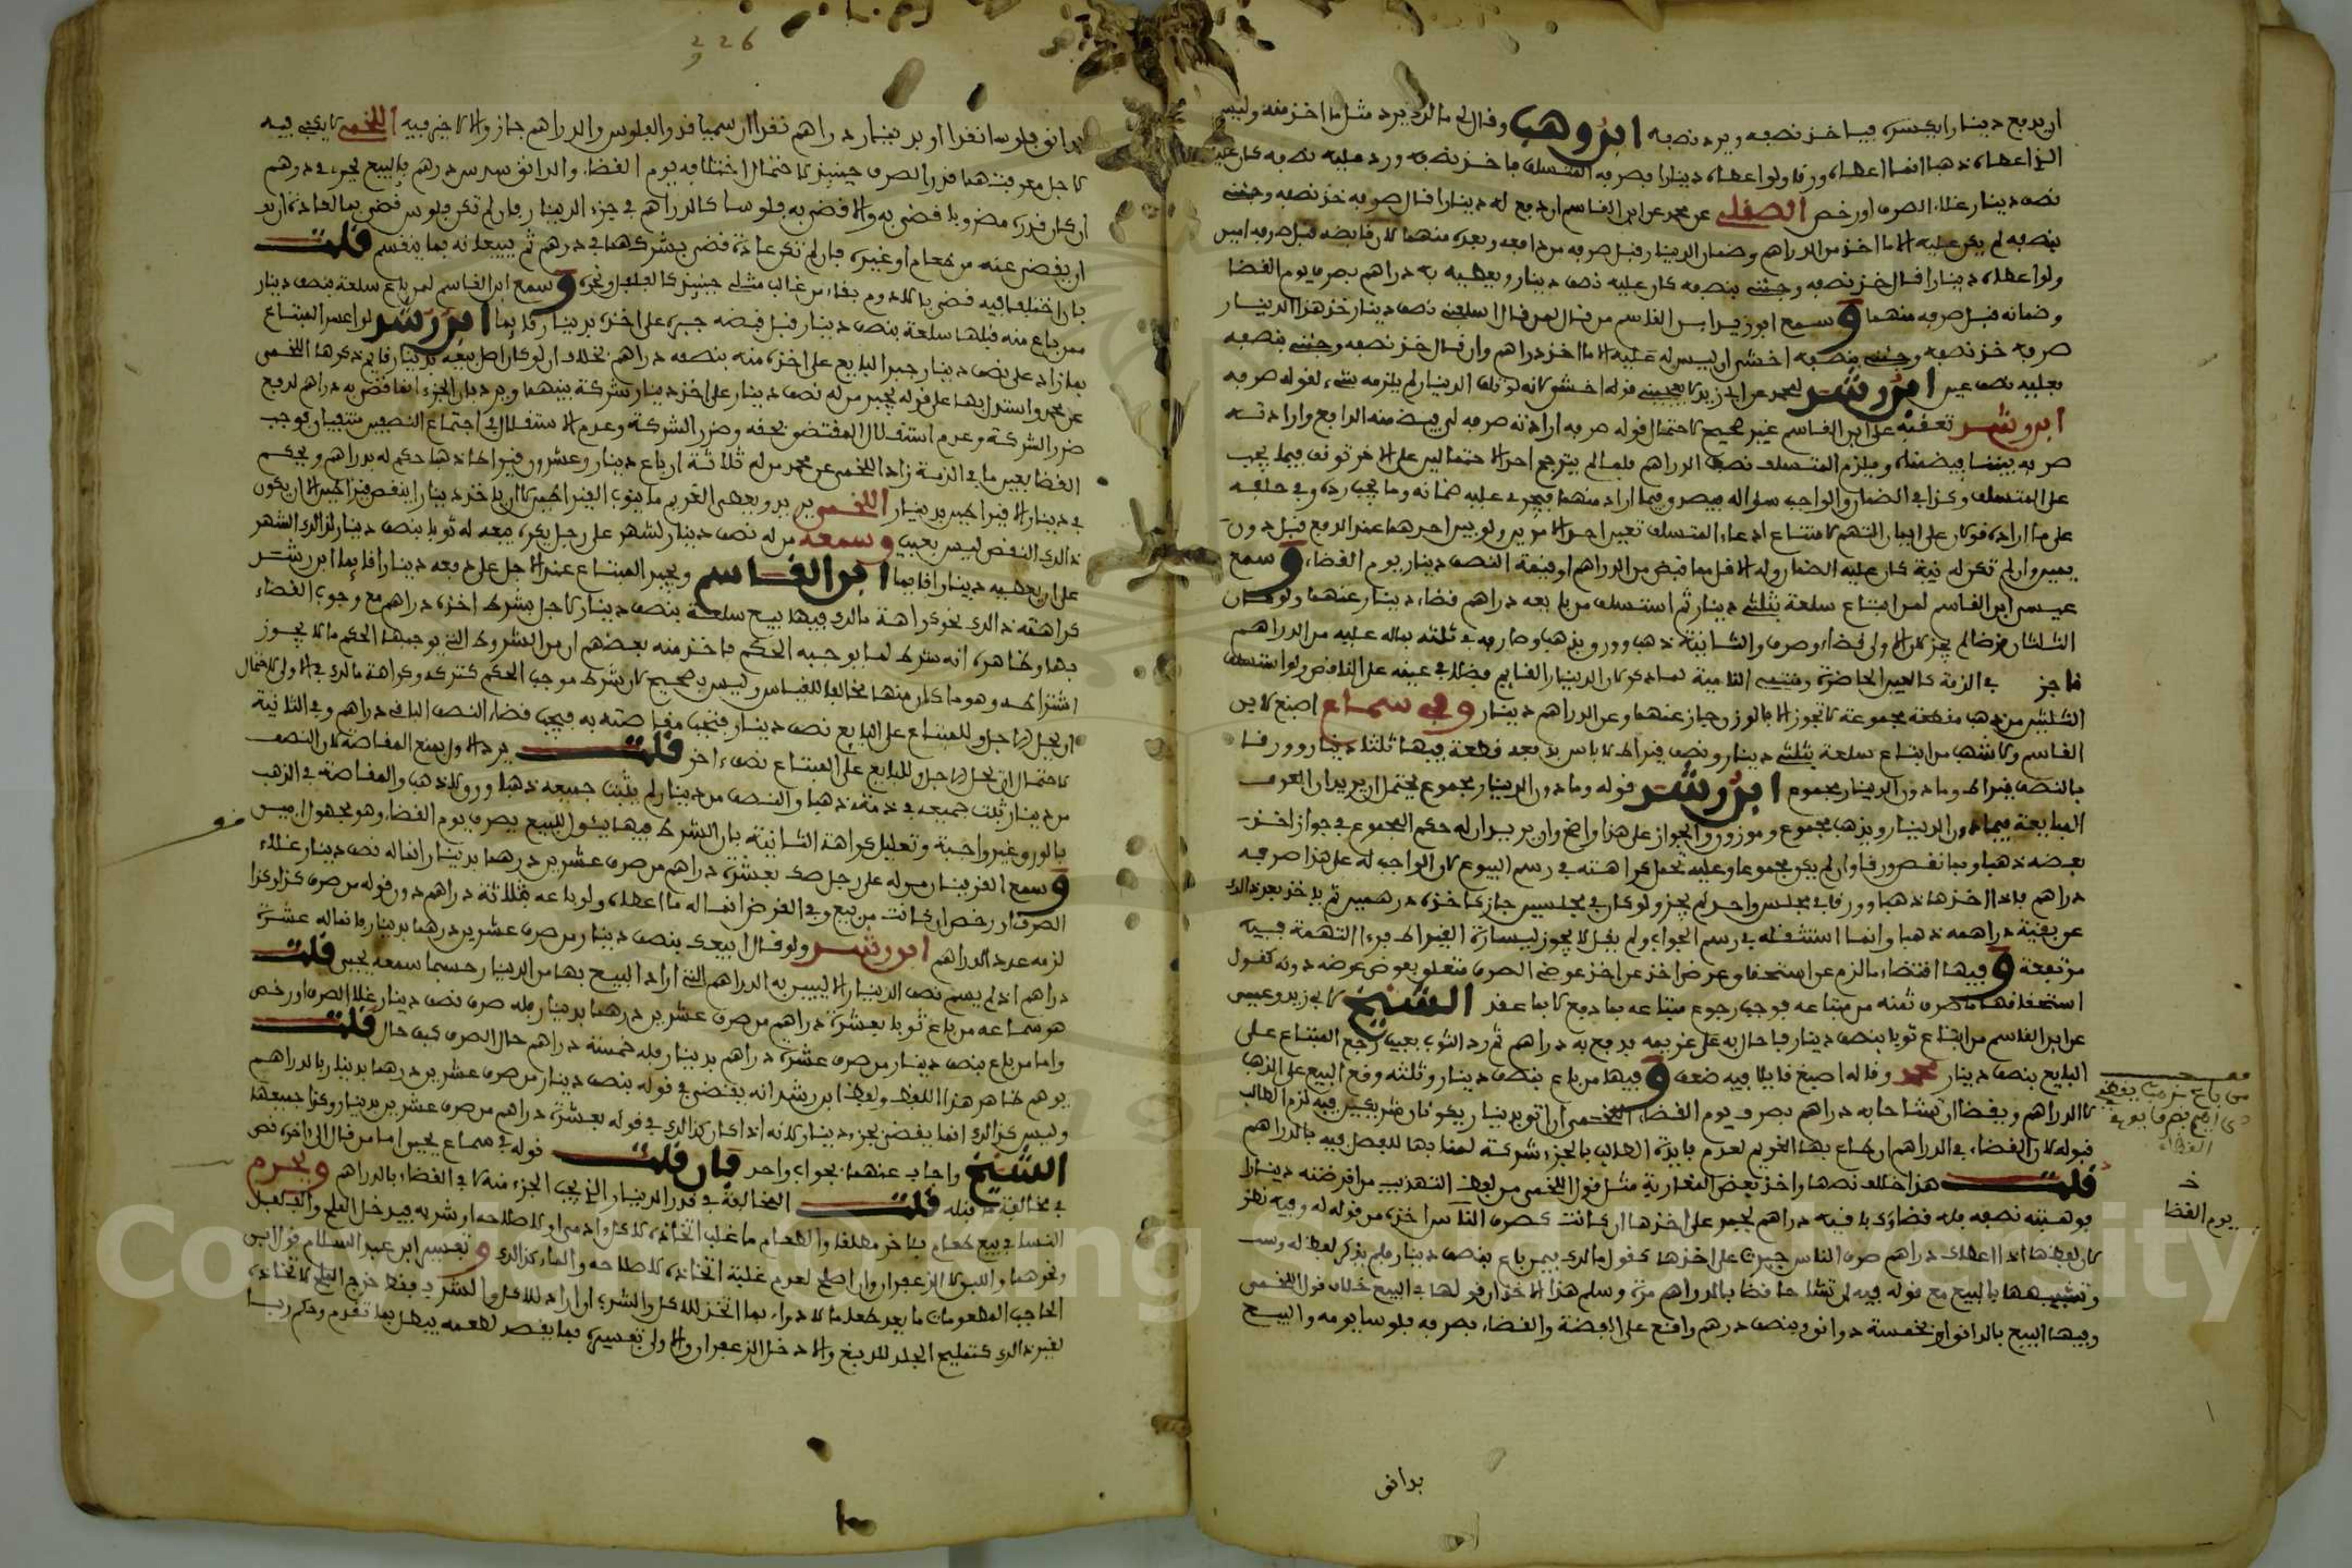 ان يدفع دينارا يكسره فياخذ نصفه ويرد نصفه ابن وهب وقال لي مالك يرد مثل ما اخذ منه وليس
الذي اعطاه ذهبا انما اعطاه ورقا ولو اعطاه دينارا فصرفه المتسلف فاخذ نصفه ورد عليه نصفه كان عليه
نصف دينار غلا الصرف او رخص الصقلي عن محمد عن ابن القاسم ان دفع له دينارا فقال صرفه خذ نصفه وجئني
بنصفه لم يكن عليه الا ما اخذ من الدراهم وضمان الدينار قبل صرفه من دافعه وبعده منهما لان قابضه قبل صرفه امين
ولو اعطاه دينارا فقال خذ نصفه وجئني بنصفه كان عليه نصف دينار ويعطيه به دراهم بصرف يوم القضا
وضمانه قبل صرفه منهما وسمع ابو زيد ابن القاسم من قال لمن قال اسلفني نصف دينار خذ هذا الدينار
صرفه خذ نصفه وجئني بنصفه اخشى ان ليس له عليه الا ما اخذ دراهم وان قال خذ نصفه وجئني بنصفه
فعليه نصف عين ابن رشد لمحمد عن ابي زيد لا يعجبني قوله اخشى لانه لو تلف الدينار لم يلزمه شيء لقوله صرفه
ابن رشد تعقبه على ابن القاسم غير صحيح لاحتمال قوله صرفه ارادته صرفه لي بقبضه منه الدافع وارادته
صرفه بيننا فيضمنه ويلزم المتسلف نصف الدراهم فلما لم يترجح احد الاحتمالين على الاخر توقف فيما يجب
على المتسلف وكذا في الضمان والواجب سؤاله فيصدق فيما اراد منهما فيجري عليه ضمانه وما يجب رده وفي حلفه
على ما اراده قولان على ايمان التهم لامتناع ادعاء المتسلف تعيين احد الامرين ولو بين احدهما عند الدفع قبل دون
يمين وان لم تكن له نية كان عليه الضمان وله الاقل مما قبض من الدراهم او قيمة النصف دينار يوم القضاء وسمع
عيسى ابن القاسم لمن ابتاع سلعة بثلثي دينار ثم استسلف من بايعه دراهم قضاء دينار عنهما ولو كان
الثلثان قرضا لم يجز لان الاولى قضاء وصرف والثانية ذهب وورق بذهب وصارفه في ثلثه بماله عليه من الدراهم
فاجز في الذمة كالعين الحاضرة
الثلثين من ذهب مقطعة مجموعة لا تجوز الا بالوزن جاز عنهما وعن الدراهم دينار وفي سماع اصبغ لابن
القاسم ولاشهب من ابتاع سلعة بثلثي دينار ونصف قيراط لا باس بدفعه قطعة فيها ثلثا دينار وورقا
بالنصف قيراط وما دون الدينار مجموع ابن رشد قوله وما دون الدينار مجموع يحتمل ان يريد ان العرف
المبايعة فيما دون الدينار وبذهب مجموع وموزون والجواز على هذا واضح وان يريد ان له حكم المجموع في جواز اخذ
بعضه ذهبا وبما نقص ورقا وان لم يكن مجموعا وعليه تحمل كراهته في رسم البيوع لان الواجب له على هذا صرفه
دراهم فاذا اخذها ذهبا وورقا في مجلس واحد لم يجز ولو كان في مجلسين جاز كاخذه درهمين ثم ياخذ بعد ذلك
عن بقية دراهمه ذهبا وانما استثقله في رسم الجواب ولم يقل لا يجوز ليسارة القيراط فبرءا التهمة فيه
مرتفعة وفيها اقتضاء ما لزم عن استحقاق عرض اخذ عن اخذ عوض الصرف متعلق بعوض عرضه دونه كقول
استحقاقها ما صرف ثمنه من مبتاعه فوجب رجوع مبتاعه بما دفع لا بما عقد الشيخ لابي زيد وعيسى
عن ابن القاسم من ابتاع ثوبا بنصف دينار فاحال به على غريمه فدفع به دراهم ثم رد الثوب بعيب رجع المبتاع على
البايع بنصف دينار محمد وقاله اصبغ قايلا فيه ضعف وفيها من باع بنصف دينار وثلثه وقع البيع على الذهب
لا الدراهم ويقضا ان تشاحا به دراهم بصرف يوم القضاء اللخمي ان اتى بدينار يكونان شريكين فيه لزم الطالب
قبوله لان القضاء في الدراهم ان طاع بها الغريم لعدم فايدة الطالب بالجزء شركة لمنابها للفضل فيه بالدراهم
قلت هذا خلاف نصها واخذ بعض المغاربة مثل قول اللخمي من لفظ التهذيب من اقرضته دينارا
فوهبته نصفه فله قضاؤك باقيه دراهم يجبر على اخذها ان كانت كصرف الناس اخذه من قوله له وفيه نظر
لان لفظها اذا اعطاك دراهم صرف الناس جبرت على اخذها كقول مالك فيمن باع بنصف دينار فلم يذكر لفظ له وست
وتشبيهها بالبيع مع قوله فيه ان تشاحا قضا بالدراهم مرة وسلم هذا الاخذ ان قولها في البيع خلاف قول اللخمي
وفيها البيع بالدانق او بخمسة دوانق وبنصف درهم واقع على الفضة والقضاء بصرفه فلوسا يومه والبيع
بدانق
يوم القضا
226
بدانق فلوسا نقدا او بدينار دراهم نقدا ان سميا قدر الفلوس والدراهم جاز والا لا خير فيه اللخمي لا يكفي فيه
لاجل معرفتهما قدر الصرف حينئذ لاحتمال اختلافه يوم القضا والدانق سدس درهم فالبيع يجزء في درهم
ان كان قدره مضروبا قضي به والا قضي به فلوسا كالدراهم في جزء الدينار فان لم تكن فلوس قضي بما العادة ان يد
او يقضى عنه من طعام او غيره فان لم تكن عادة قضي بشركهما في درهم ثم يبيعانه بما ينقسم قلت
فان اختلفا فيه قضي بالادوم بقاء من غالب مثلي حينئذ كالفلفل ونحوه وسمع ابن القاسم لمن باع سلعة بنصف دينار
ممن باع منه قبلها سلعة بنصف دينار قبل قبضه جبره على اخذه بدينار قايما ابن رشد لو اعسر المبتاع
بما زاد على نصف دينار جبر البايع على اخذه منه بنصفه دراهم بخلاف ان لو كان اصل بيعه بدينار قايم ذكرها اللخمي
عن محمد واستدل بها على قوله يجبر من له نصف دينار على اخذ دينار شركة بينهما ويرد بان الجزء انما قضي به دراهم لدفع
ضرر الشركة وعدم استقلال المقتضى بحقه وضرر الشركة وعدم الاستقلال في اجتماع النصفين منتفيان فوجب
القضا بعين ما في الذمة زاد اللخمي عن محمد من له ثلاثة ارباع دينار وعشرون قيراطا ذهبا حكم له بدراهم ويحكم
في دينار الا قيراطين بدينار اللخمي يريد ويعطي الغريم ما ينوب القيراطين لا ان ياخذ دينارا ينقص قيراطين الا ان يكون
ذلك النقص ليس بعيب وسمعه من له نصف دينار لشهر على رجل يكره بيعه له ثوبا بنصف دينار لذلك الشهر
على ان يعطيه دينارا قايما ابن القاسم ويجبر المبتاع عند الاجل على دفعه دينارا قايما ابن رشد
كراهته ذلك نحو كراهة مالك فيها بيع سلعة بنصف دينار لاجل بشرط اخذه دراهم مع وجوب القضاء
بها وظاهره انه شرط لما يوجبه الحكم فاخذ منه بعضهم ان من الشروط التي يوجبها الحكم ما لا يجوز
اشتراطه وهو ما كان منها مخالفا للقياس وليس بصحيح لان شرط موجب الحكم كتركه وكراهة مالك في الاولى لاحتمال
ان يحل الاجل وللمبتاع على البايع نصف دينار فتجب مقاصته به فيجب قضاء النصف الباقي دراهم وفي الثانية
لاحتمال ان يحل الاجل وللبايع على المبتاع نصف اخر قلت يرد الاول بمنع المقاصة لان النصف
من دينار ثبت جميعه في ذمته ذهبا والنصف من دينار لم يثبت جميعه ذهبا وورقا ذهب والمقاصة في الذهب
بالورق غير واجبة وتعليل كراهة الثانية بان الشرط فيها يئول للبيع بصرف يوم القضاء وهو مجهول ابين
وسمع القرينان من له على رجل صك بعشرة دراهم من صرف عشرين درهما بدينار انما له نصف دينار غلاء
الصرف او رخص ان كانت من بيع وفي القرض انما له ما اعطاه ولو باعه بثلاثة دراهم دون قوله من صرف كذا وكذا
لزمه عدد الدراهم ابن رشد ولو قال ابيعك بنصف دينار من صرف عشرين درهما بدينار فانما له عشرة
دراهم اذ لم يسم نصف الدينار الا ليبين به الدراهم التي اراد البيع بها من الدينار حسبما سمعه يحيى قلت
هو سماعه من باع ثوبا بعشرة دراهم من صرف عشرين درهما بدينار فله صرف نصف دينار غلا الصرف او رخص
واما من باع بنصف دينار من صرف عشرة دراهم بدينار فله خمسة دراهم حال الصرف كيف حال قلت
يوهم ظاهر هذا اللفظ ولفظ ابن رشد انه يقتضي في قوله بنصف دينار من صرف عشرين درهما بدينار بالدراهم
وليس كذلك انما يقضى بجزء دينار لانه اذا كان كذلك في قوله بعشرة دراهم من صرف عشرين بدينار وكذا جميعها
الشيخ واجاب عنهما بجواب واحد فان قلت قوله في سماع يحيى اما من قال الى اخره نص
في مخالفة ما قبله قلت المخالفة في قدر الدينار الذي يجب الجزء منه لا في القضاء بالدراهم ويحرم
النسا في بيع طعام باخر مطلقا والطعام ما غلب اتخاذه لاكل ادمي او لاصلاحه او شربه فيدخل الملح والفلفل
ونحوهما واللبن لا الزعفران وان اصلح لعدم غلبة اتخاذه لاصلاحه والماء كذلك وتفسير ابن عبد السلام قول ابن
الحاجب المطعومات ما يعد طعاما لا دواء بما اتخذ للاكل والشرب ان اراد للاكل والشرب فقط خرج الملح لاتخاذه
لغير ذلك كتمليح الجلد للدبغ والا دخل الزعفران والاولى تفسيره بما يقصر لطعمه فيبطل بما تقدم وحكم ربا